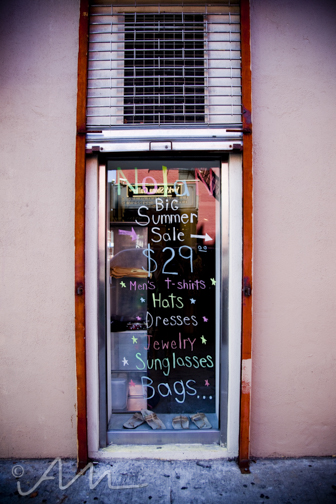 New
BIG
Summer
Sale →
$29.00
Men's t-shirts
Hats
Dresses
Jewelry
Sunglasses
Bags...
© AM